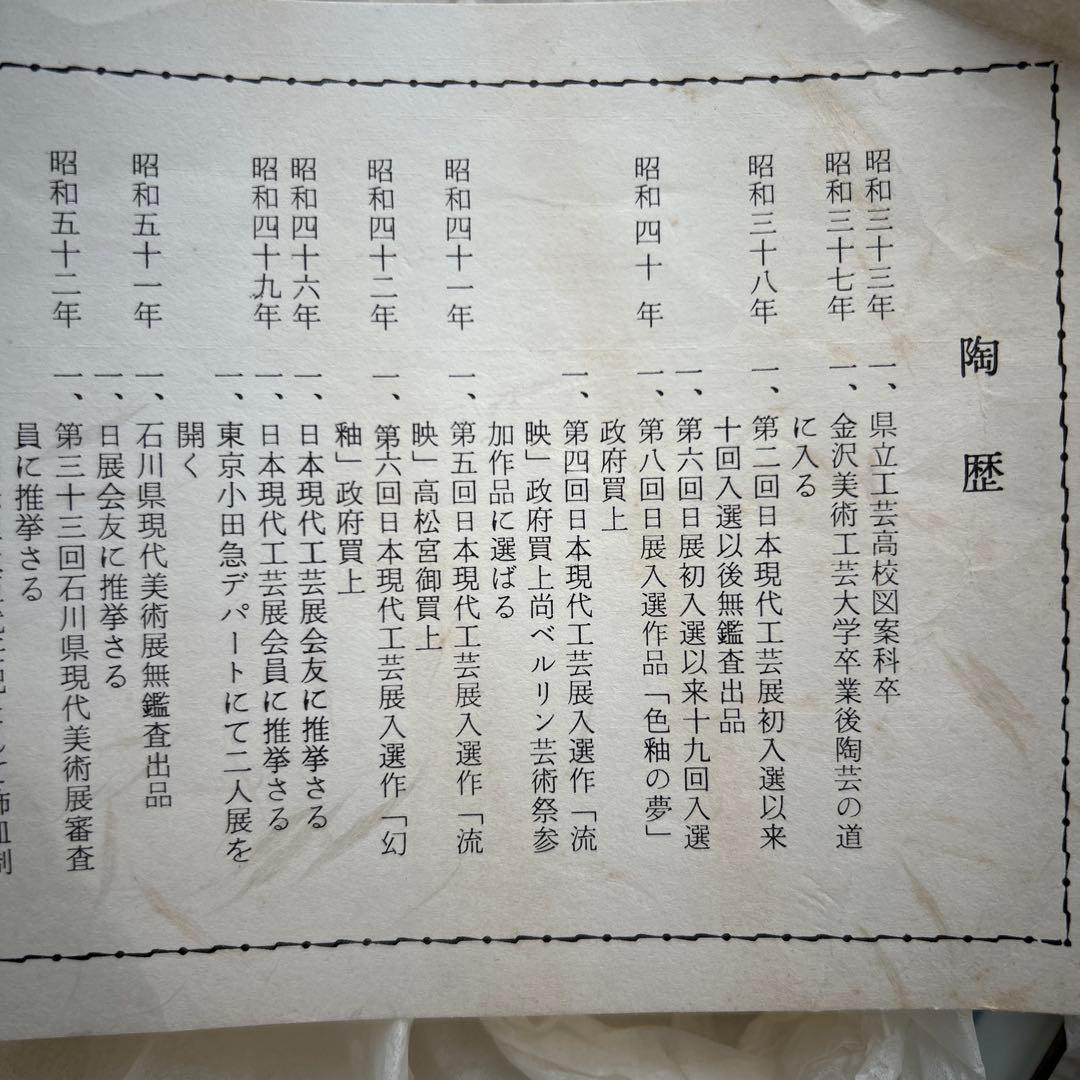 陶歴
昭和三十三年 一、県立工芸高校図案科卒
昭和三十七年 一、金沢美術工芸大学卒業後陶芸の道
に入る
昭和三十八年 一、第二回日本現代工芸展初入選以来
十回入選以後無鑑査出品
一、第六回日展初入選以来十九回入選
昭和四十年 一、第八回日展入選作品「色釉の夢」
政府買上
一、第四回日本現代工芸展入選作「流
映」政府買上尚ベルリン芸術祭参
加作品に選ばる
昭和四十一年 一、第五回日本現代工芸展入選作「流
映」高松宮御買上
昭和四十二年 一、第六回日本現代工芸展入選作「幻
釉」政府買上
昭和四十六年 一、日本現代工芸展会友に推挙さる
昭和四十九年 一、日本現代工芸展会員に推挙さる
一、東京小田急デパートにて二人展を
開く
昭和五十一年 一、石川県現代美術展無鑑査出品
一、日展会友に推挙さる
昭和五十二年 一、第三十三回石川県現代美術展審査
員に推挙さる